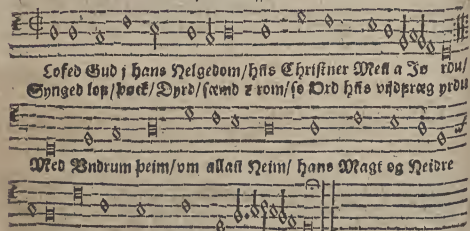 Lofed Gud j hans Helgedom/ hñs Christner Meñ a Jø rdu/
Synged lof/ þøck/ Dyrd/ sæmd z rom/ so Ord hñs vijdfræg yrdu
Med Vndrum þeim/ vm allañ Heim/ hans Magt og Heidre